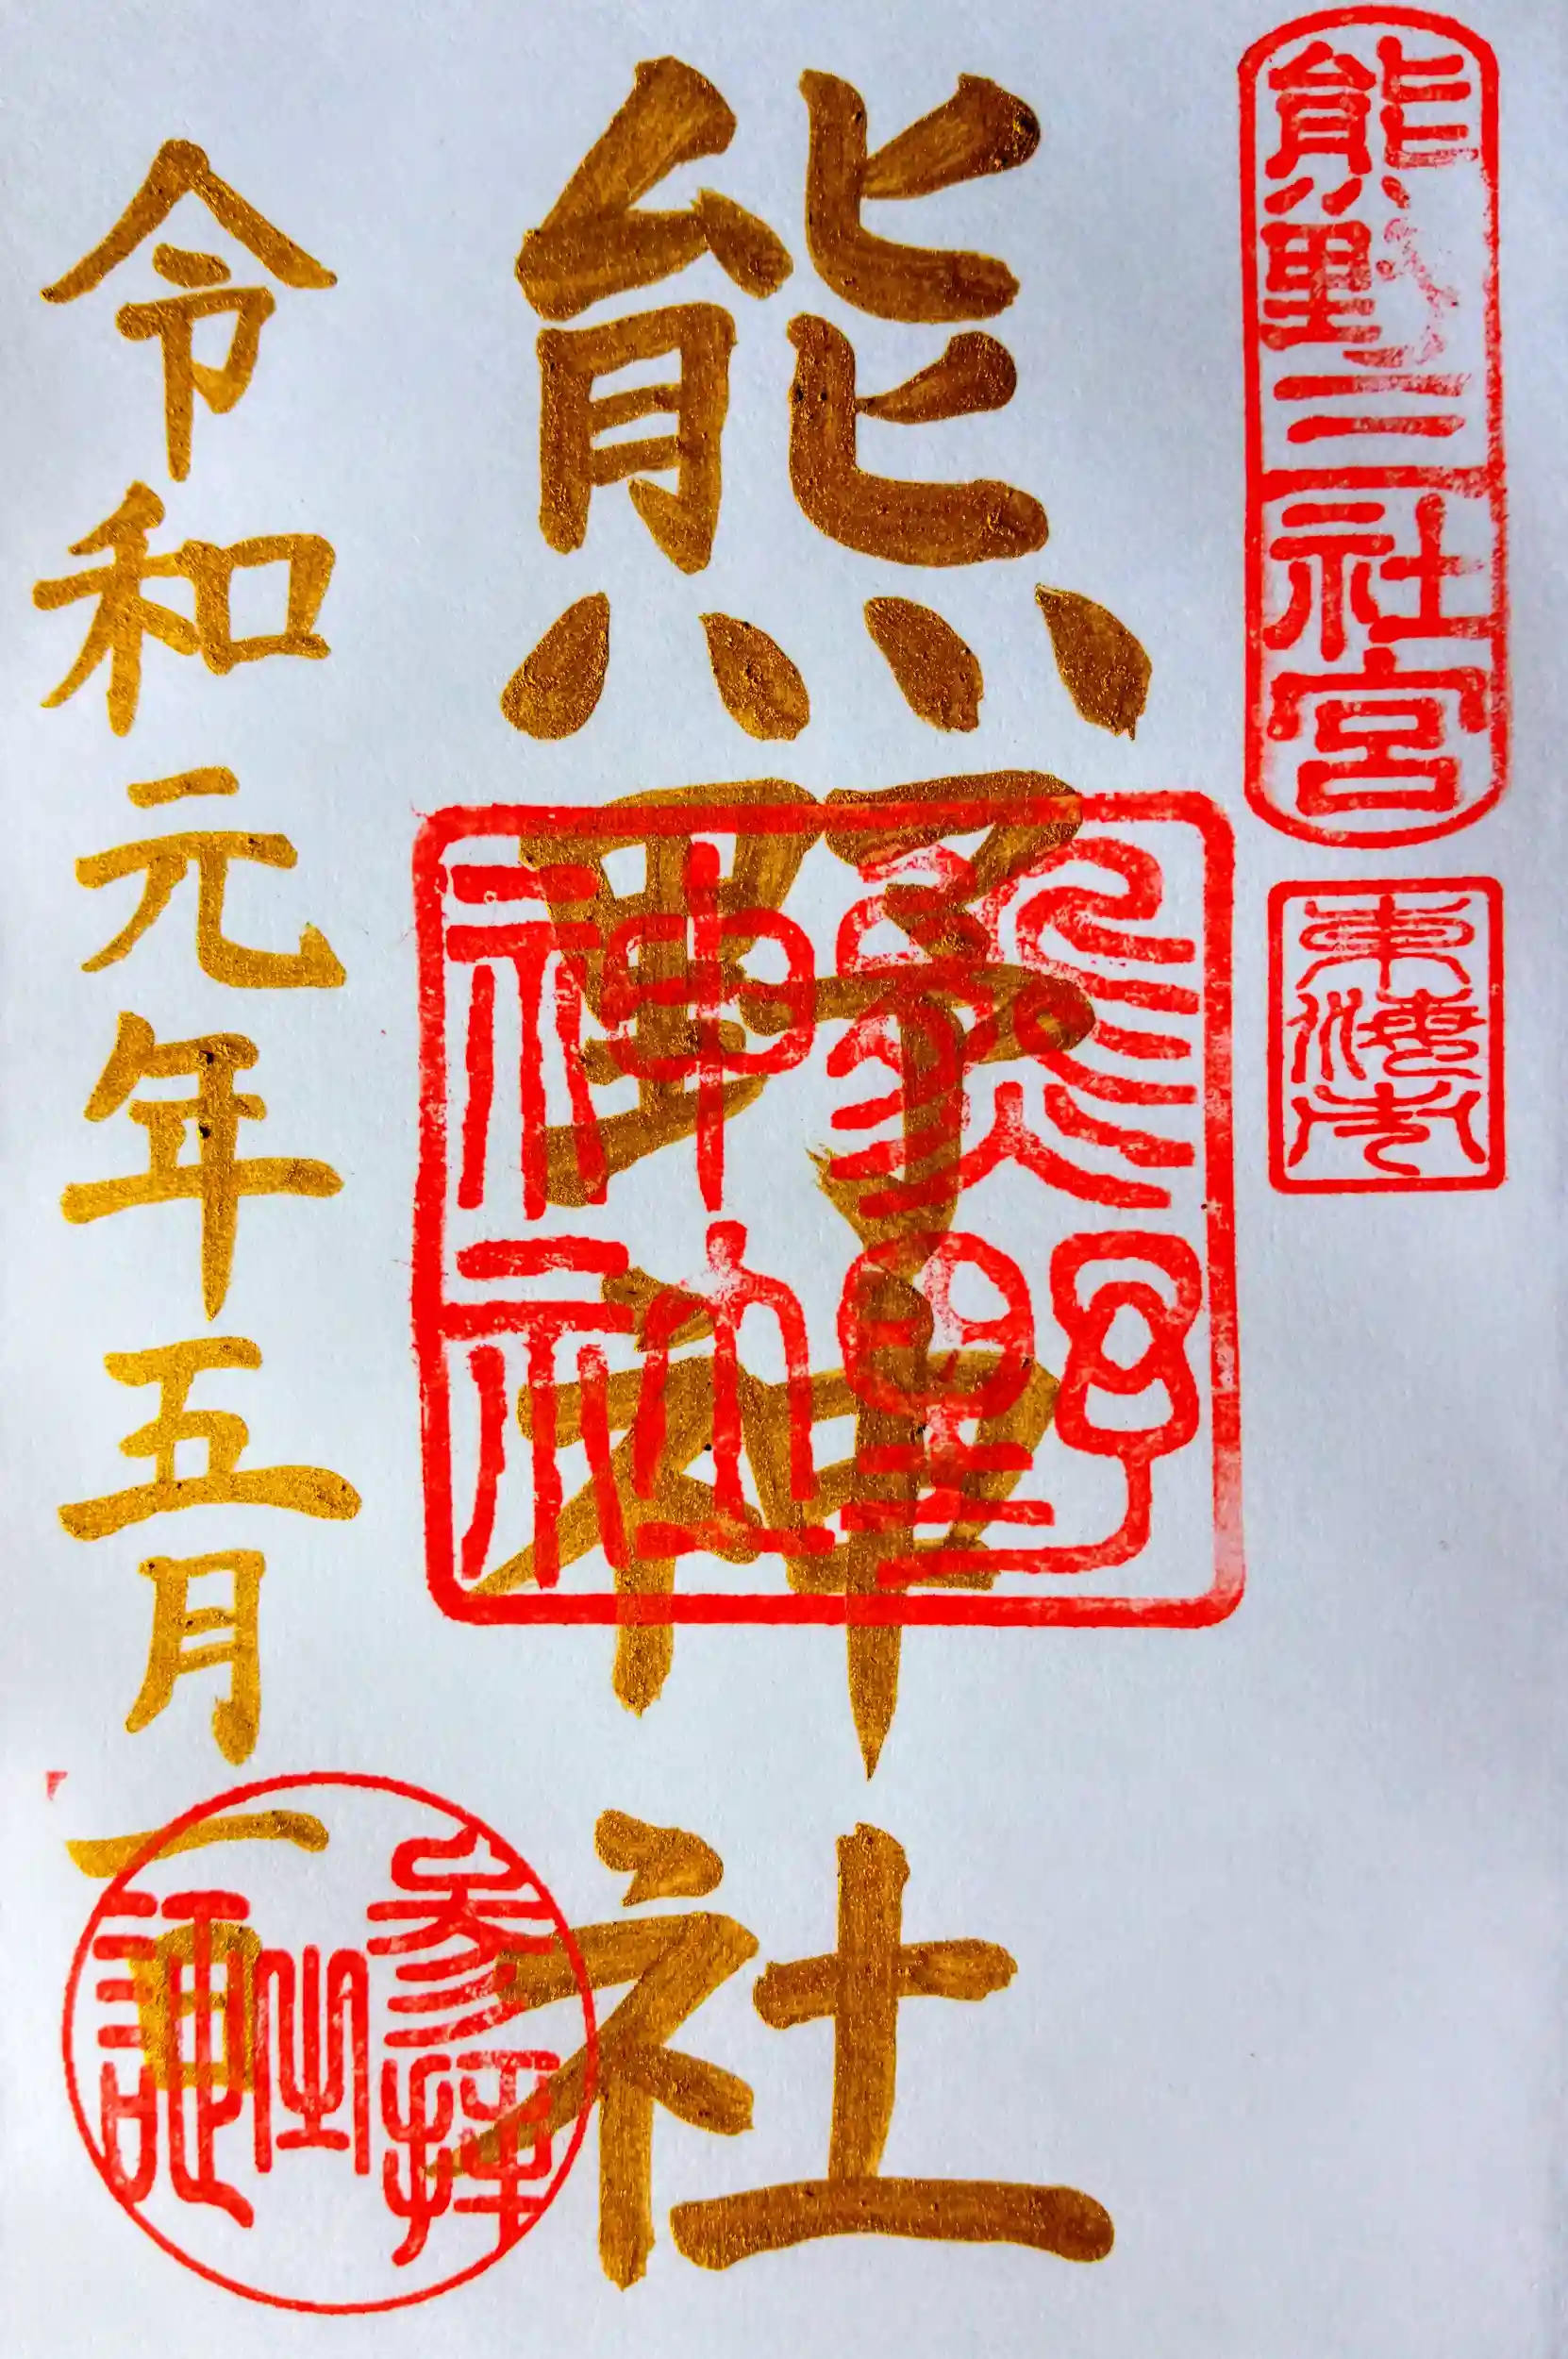 熊野三社宮
東海市
熊野神社
熊野神社
令和元年五月一日
参拝之証